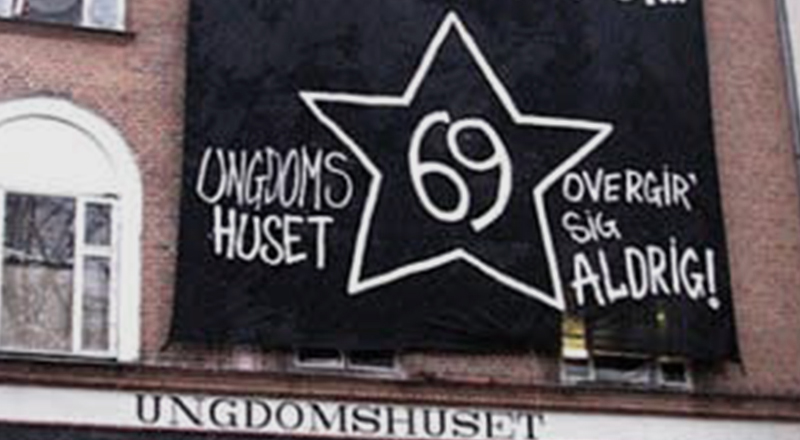 UNGDOMS
HUSET
69
OVERGIR'
SIG
ALDRIG!
UNGDOMSHUSET